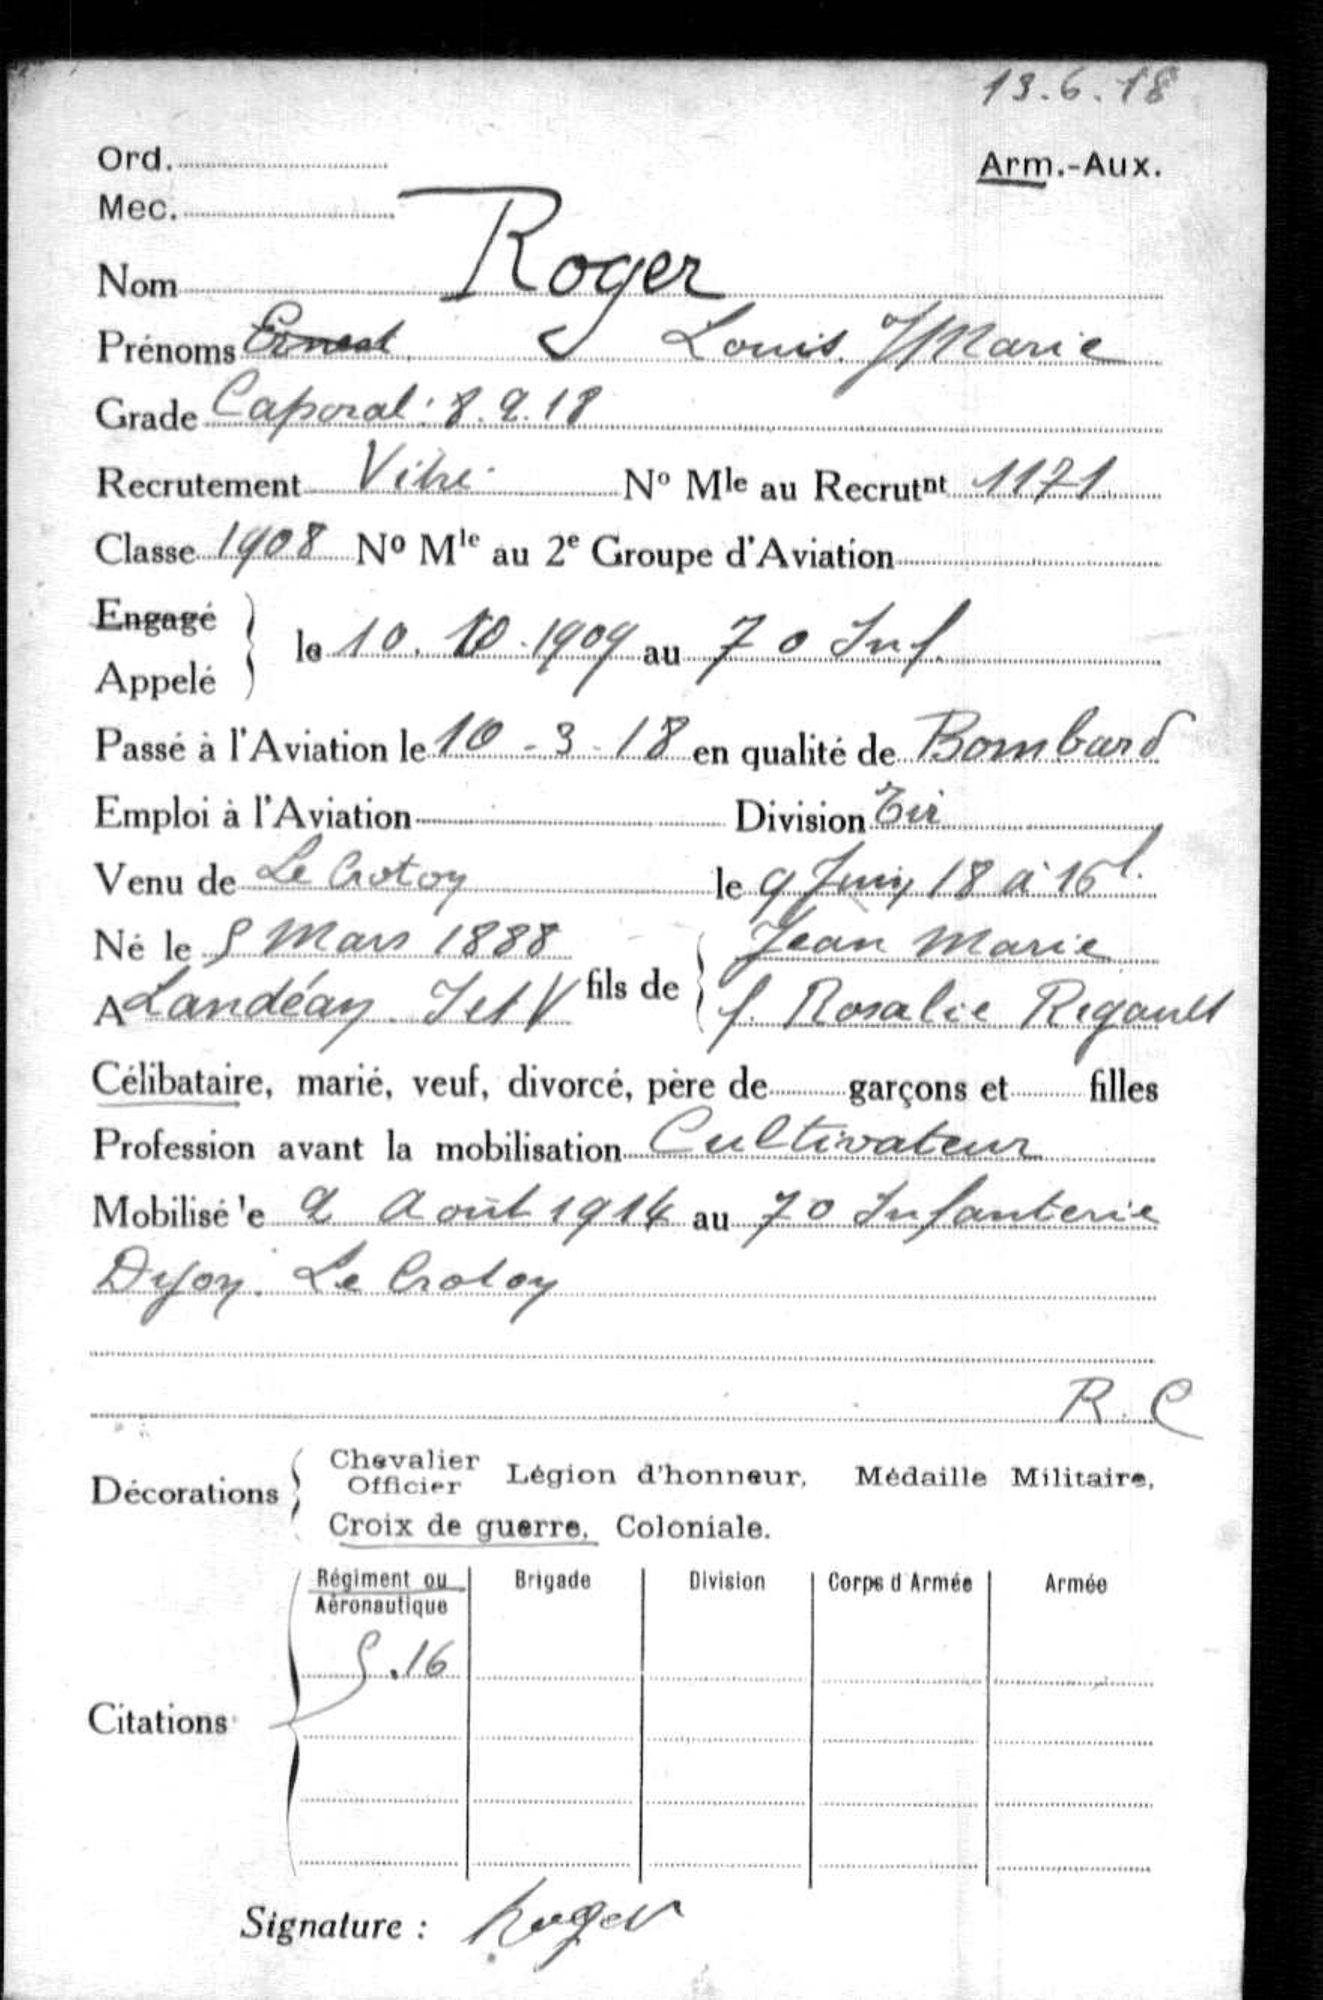 13.6.18
Ord.
Arm.-Aux.
Mec.
Nom Roger
Prénoms Ernest Louis J Marie
Grade Caporal: 8.9.18
Recrutement Vitré No Mle au Recrutnt 1171
Classe 1908 No Mle au 2e Groupe d'Aviation
Engagé
Appelé
le 10. 10. 1909 au 70 Inf.
Passé à l'Aviation le 10 - 3 - 18 en qualité de Bombard
Emploi à l'Aviation Division Tir
Venu de Le Crotoy le 9 Juin 18 à 16
Né le 5 Mars 1888 fils de Jean Marie
A Landéan. I et V f. Rosalie Regault
Célibataire, marié, veuf, divorcé, père de garçons et filles
Profession avant la mobilisation Cultivateur
Mobilisé le 2 Août 1914 au 70 Infanterie
Dijon. Le Crotoy
R. C
Décorations Chevalier Officier Légion d'honneur, Médaille Militaire,
Croix de guerre, Coloniale.
Régiment ou Aéronautique Brigade Division Corps d Armée Armée
5.16
Citations
Signature : Roger